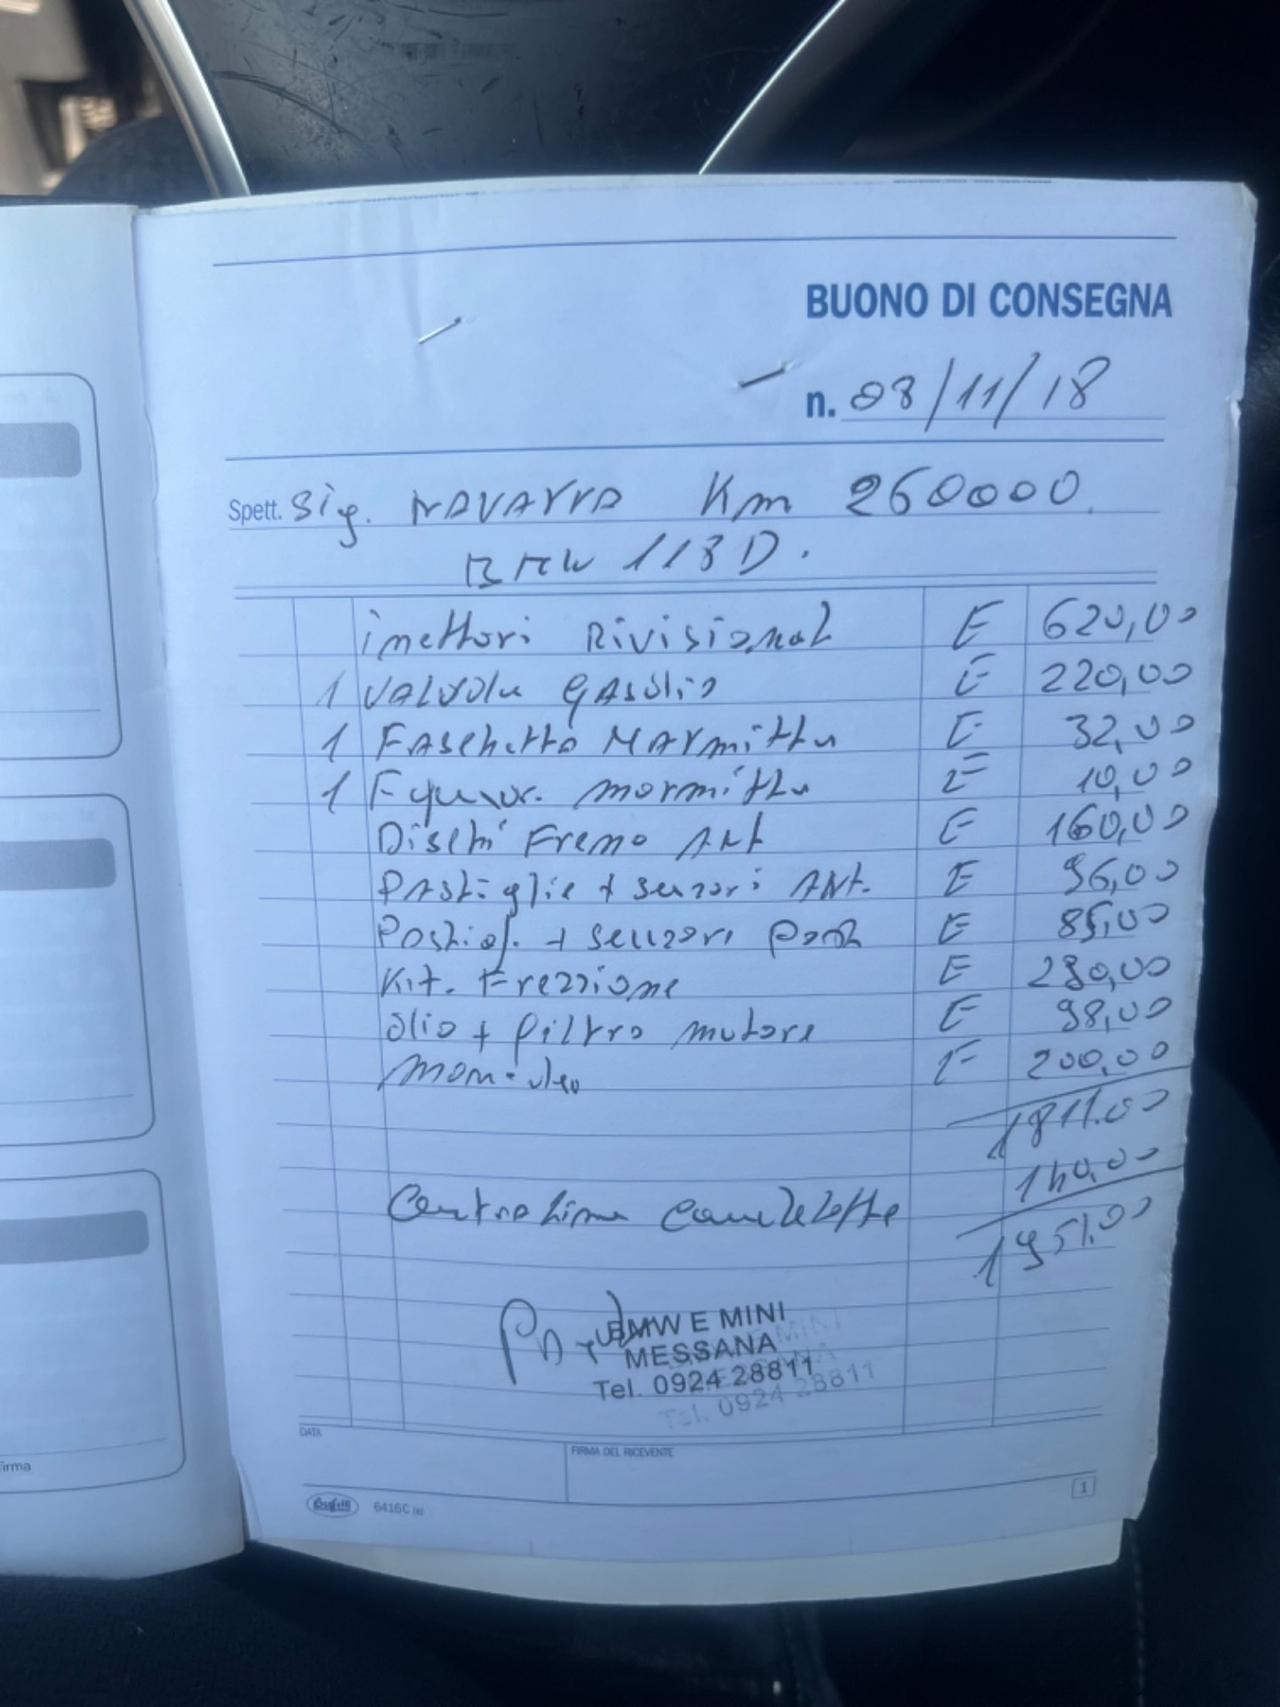 BUONO DI CONSEGNA
n. 08/11/18
Spett. Sig. NAVARRA Km 260000.
BMW 118D.
inettori Rivisionat E 620,00
1 VALVOLA GASOLIO E 220,00
1 FASChetta MARmitta E 32,00
1 marmitta E 10,00
Dischi Freno ANT E 160,00
PASTiglie + sensori ANT. E 96,00
Pastigl. + sensori Post E 85,00
Kit. Frezzione E 290,00
olio + filtro motore E 98,00
E 200,00
1811.00
Centralina candelette 140.00
1951.00
BMW E MINI
MESSANA
Tel. 0924 28811
DATA
FIRMA DEL RICEVENTE
Buffetti 6416C
1
irma